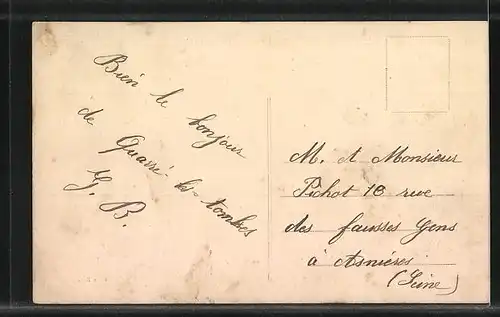 Bien le bonjour
de Quarré-les-tombes
G. B.
M. et Monsieur
Pichot 18 rue
des fausses Gens
à Asnières
(Seine)